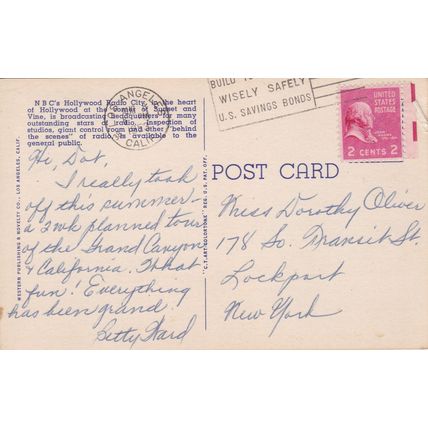 NBC's Hollywood Radio City, in the heart
of Hollywood at the corner of Sunset and
Vine, is broadcasting headquarters for many
outstanding stars of radio. Inspection of
studios, giant control room and other "behind
the scenes" of radio, is available to the
general public.
LOS ANGELES
CALIF.
BUILD
WISELY SAFELY
U.S. SAVINGS BONDS
UNITED
STATES
POSTAGE
JOHN
ADAMS
2 CENTS 2
WESTERN PUBLISHING & NOVELTY CO., LOS ANGELES, CALIF.
"C.T. ART-COLORTONE" REG. U.S. PAT. OFF.
POST CARD
Hi, Dot,
I really took
off this summer—
a 2 wk planned tour
of the Grand Canyon
& California. What
fun! Everything
has been grand.
Betty Ward
Miss Dorothy Oliver
178 So. Transit St.
Lockport
New York